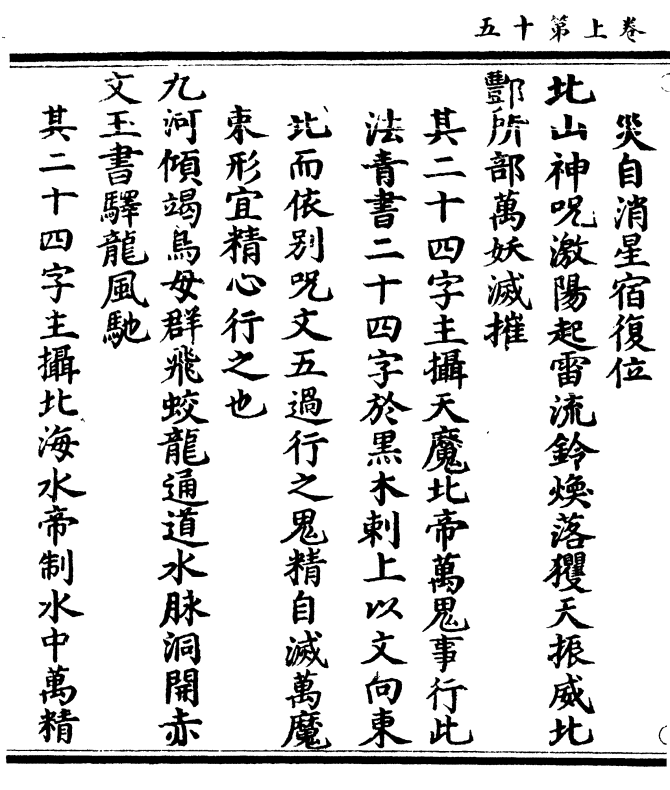 卷上第十五
災自消星宿復位
北山神咒激陽起雷流鈴煥落玃天振威北
酆所部萬妖滅摧
其二十四字主攝天魔北帝萬鬼事行此
法青書二十四字於黑木刺上以文向東
北而依別咒文五過行之鬼精自滅萬魔
束形宜精心行之也
九河傾竭鳥母群飛蛟龍通道水脉洞開赤
文玉書驛龍風馳
其二十四字主攝北海水帝制水中萬精